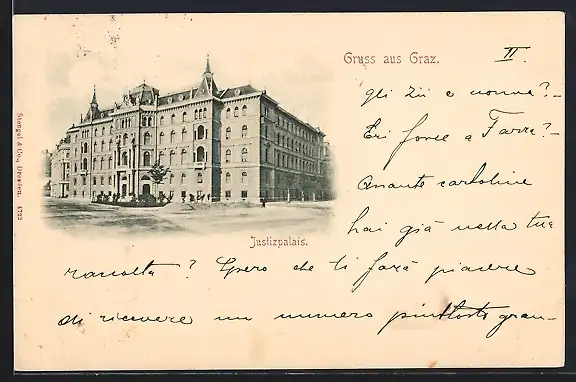 Gruss aus Graz.
II.
gli Zii e nonna? –
Eri forse a Farra? –
Quante cartoline
hai già nella tua
raccolta? Spero che ti farà piacere
di ricevere un numero piuttosto gran-
Justizpalais.
Stengel & Co., Dresden. 4722